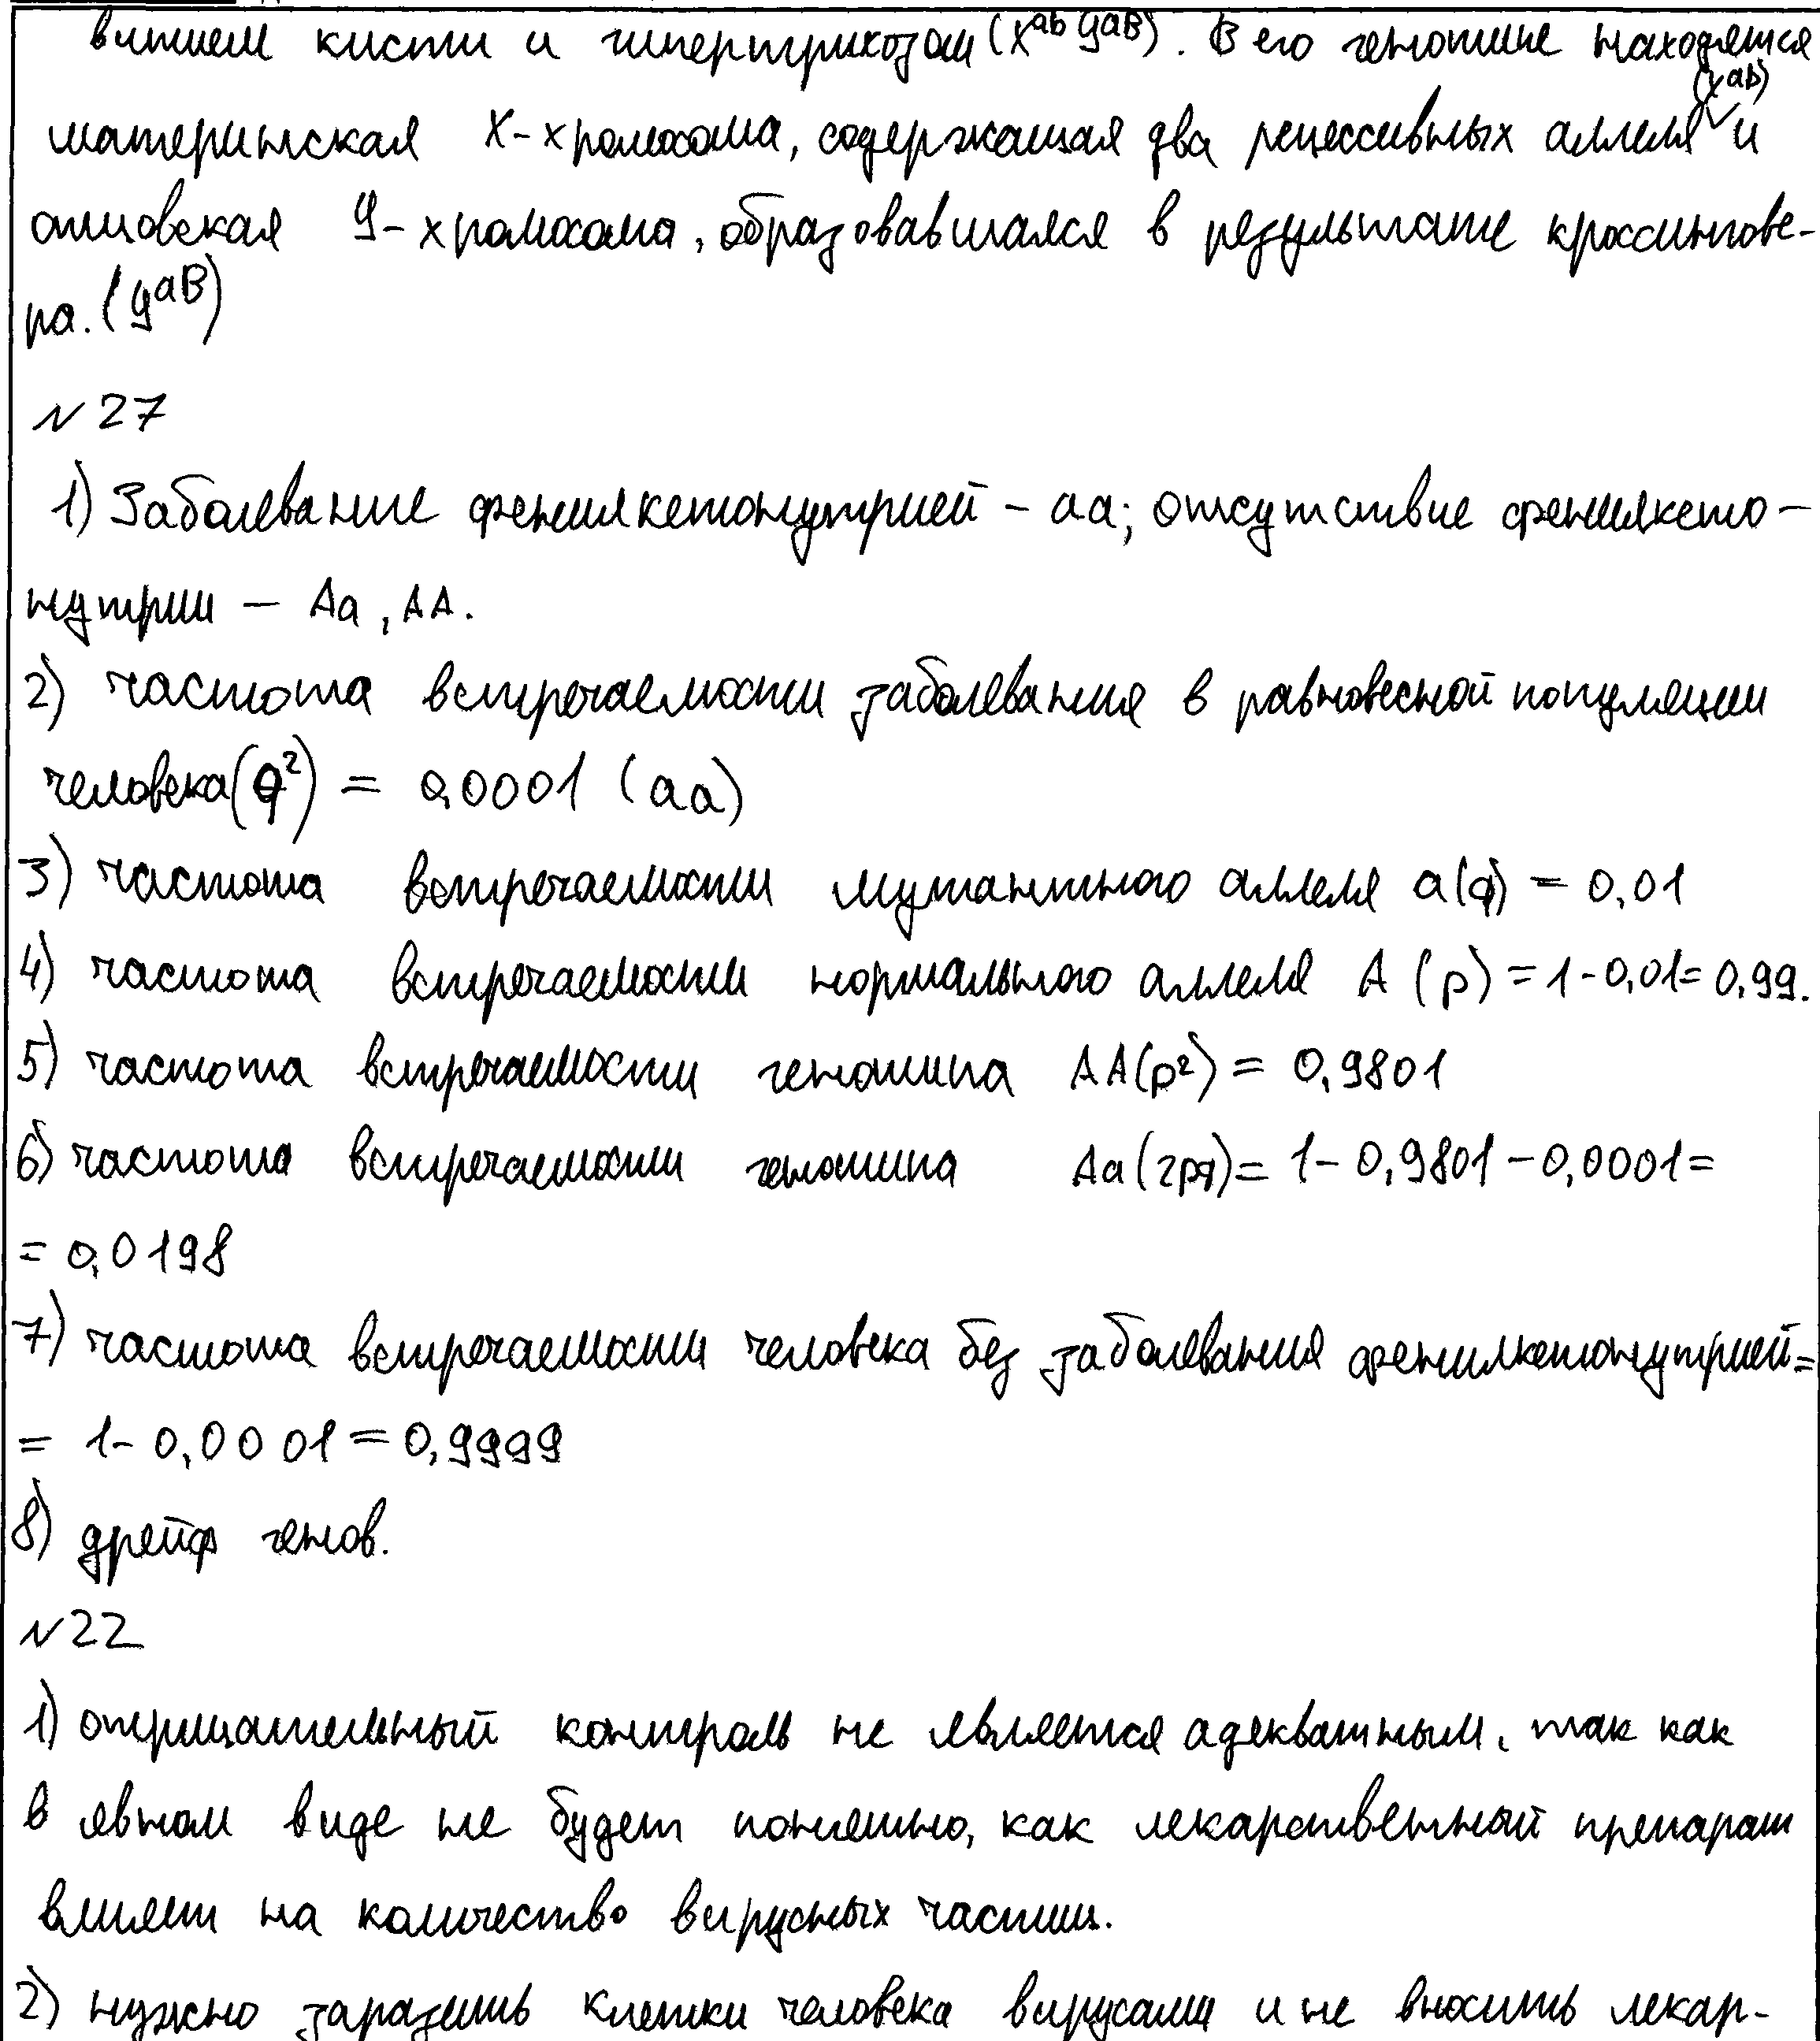 витием кисти и гипертрихозом (X^ab Y^aB). В его генотипе находятся
материнская X-хромосома, содержащая два рецессивных аллеля (X^ab) и
отцовская Y-хромосома, образовавшаяся в результате кроссингове-
ра. (Y^aB)
№ 27
1) Заболевание фенилкетонутрией - aa; отсутствие фенилкето-
нутрии - Aa, AA.
2) частота встречаемости заболевания в равновесной популяции
человека (q²) = 0,0001 (aa)
3) частота встречаемости мутантного аллеля a(q) = 0,01
4) частота встречаемости нормального аллеля A (p) = 1-0,01= 0,99.
5) частота встречаемости генотипа AA(p²) = 0,9801
6) частота встречаемости генотипа Aa(2pq)= 1-0,9801-0,0001=
= 0,0198
7) частота встречаемости человека без заболевания фенилкетонутрией=
= 1-0,0001=0,9999
8) дрейф генов.
№ 22
1) отрицательный контроль не является адекватным, так как
в явном виде не будет понятно, как лекарственный препарат
влияет на количество вирусных частиц.
2) нужно заразить клетки человека вирусами и не вносить лекар-